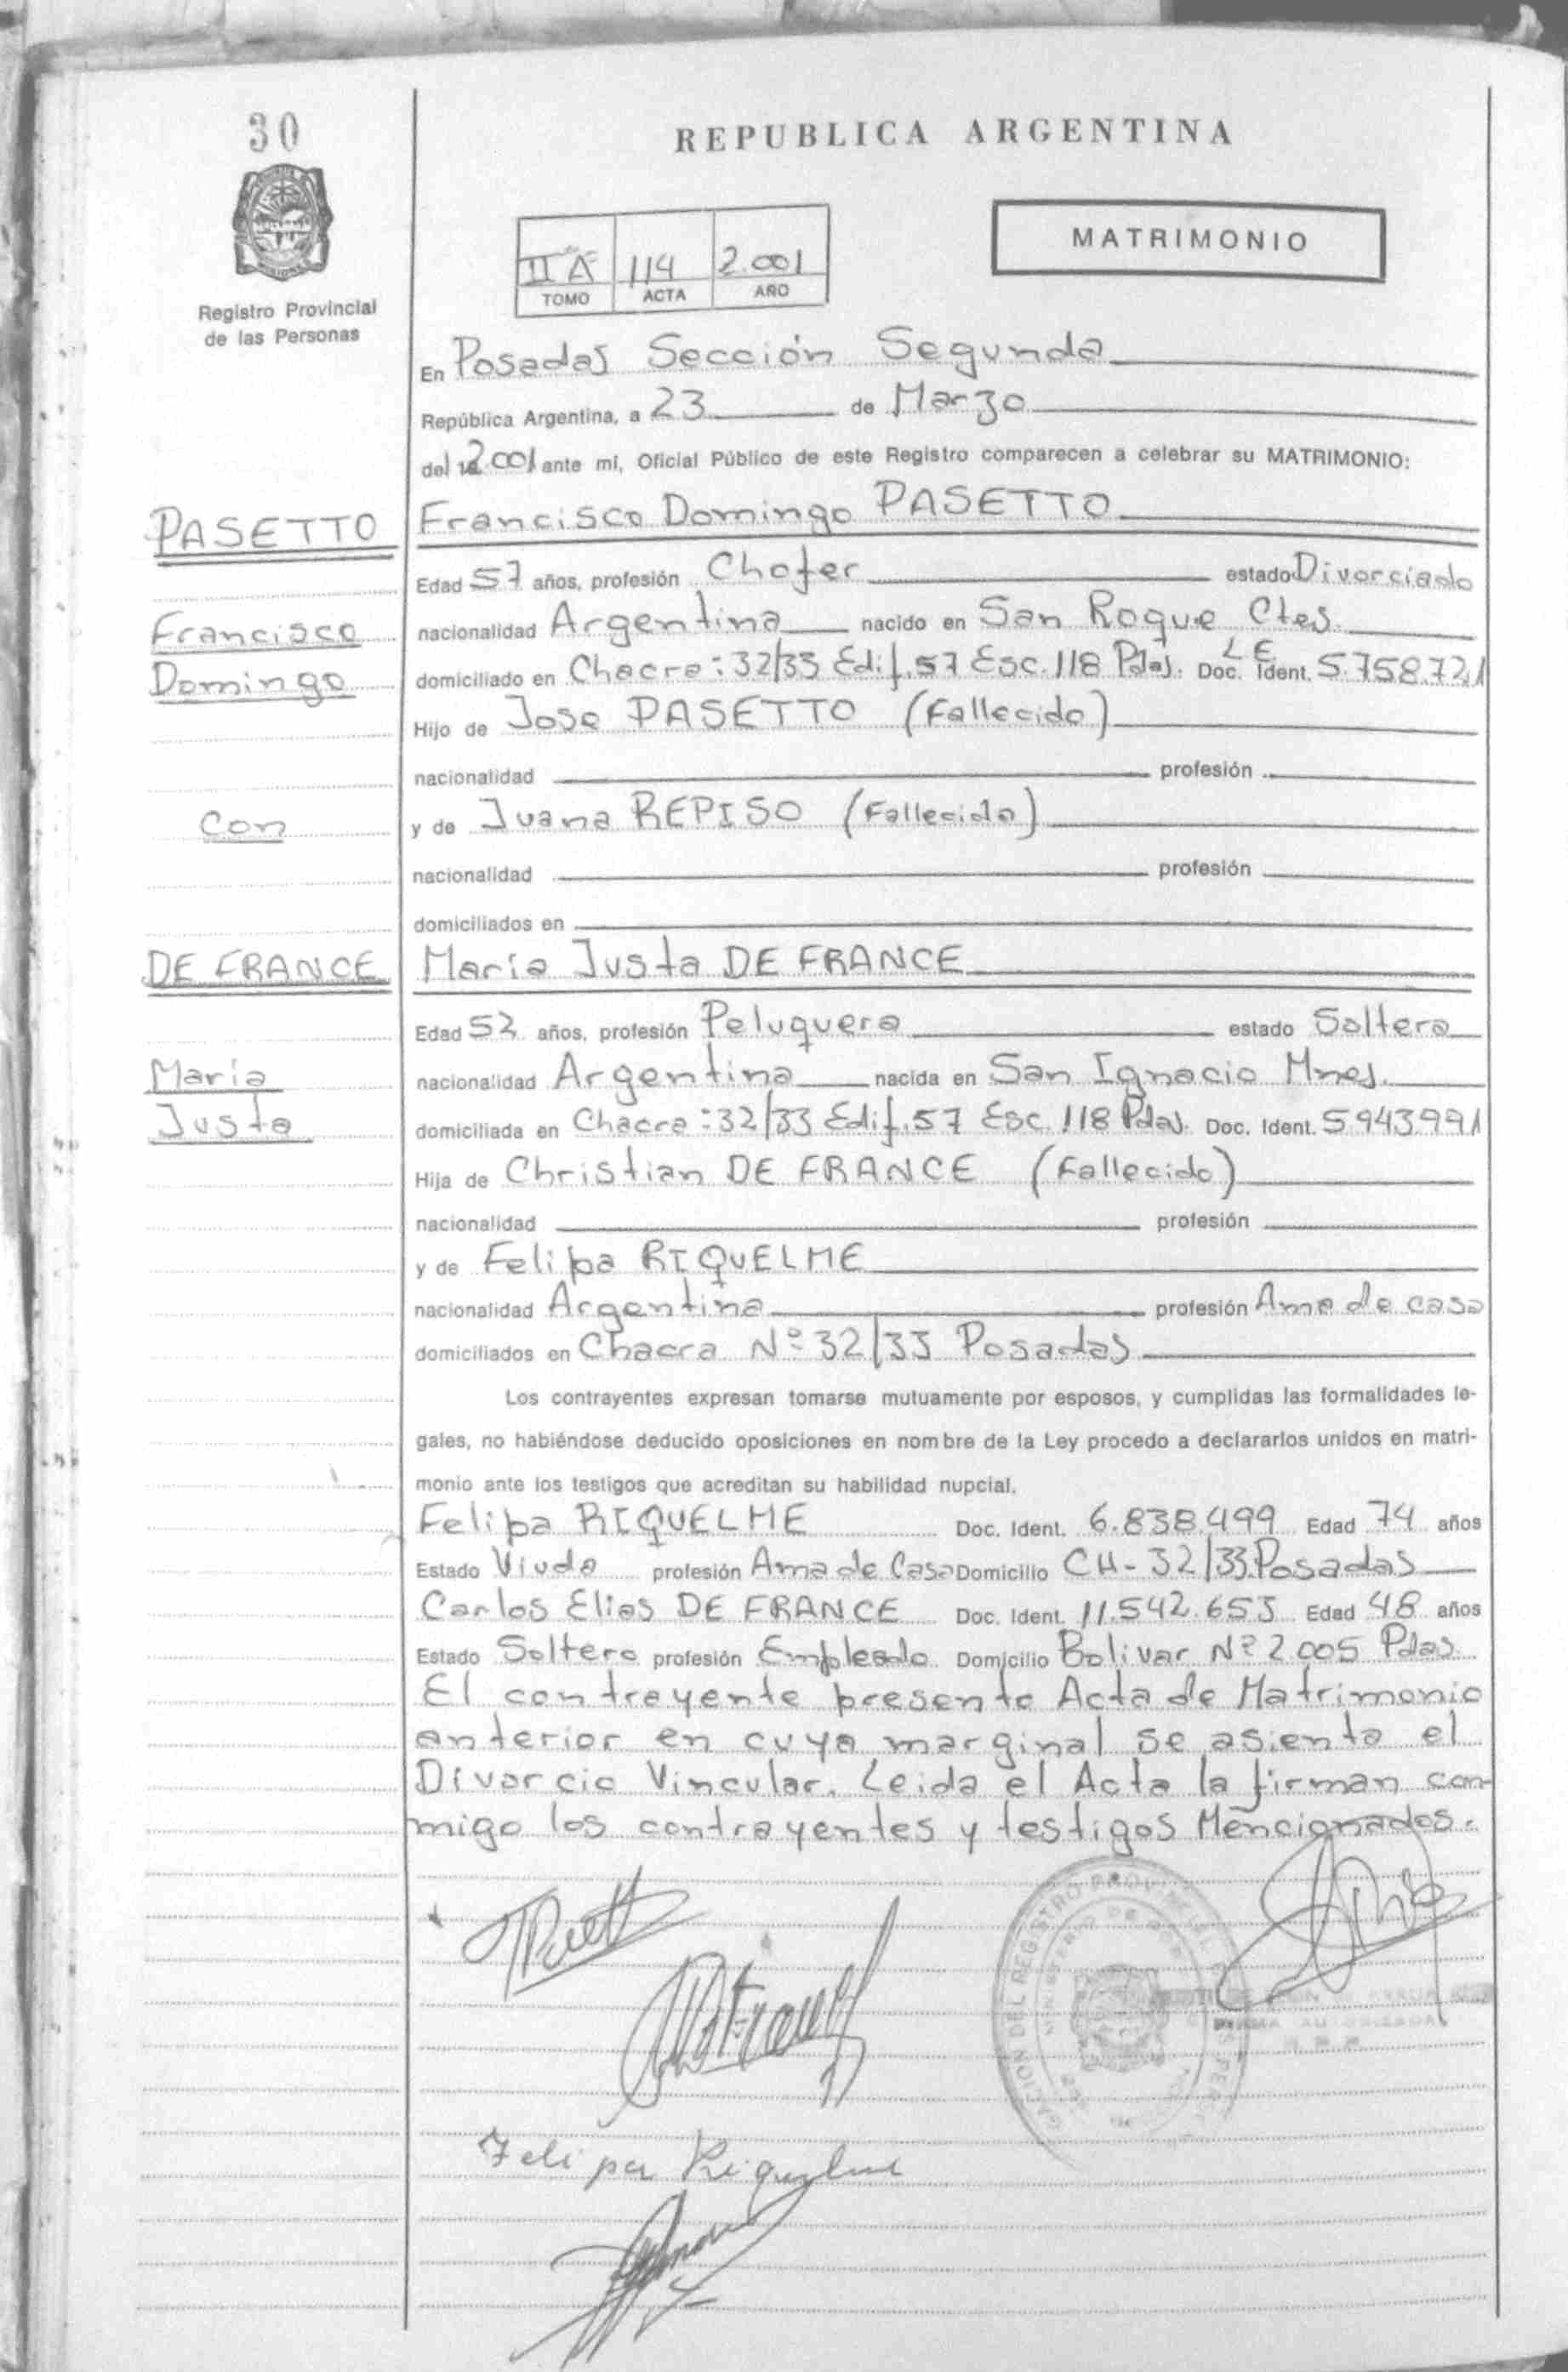 30
REPUBLICA ARGENTINA
MATRIMONIO
II A 114 2.001
TOMO ACTA AÑO
Registro Provincial
de las Personas
En Posadas Sección Segunda
República Argentina, a 23 de Marzo
del 2.001 ante mí, Oficial Público de este Registro comparecen a celebrar su MATRIMONIO:
PASETTO Francisco Domingo PASETTO
Edad 57 años, profesión Chofer estado Divorciado
Francisco nacionalidad Argentina nacido en San Roque Ctes.
Domingo domiciliado en Chacra: 32/33 Edif. 57 Esc. 118 Pdas. Doc. Ident. L E 5.758.721
Hijo de Jose PASETTO (Fallecido)
nacionalidad profesión
Con y de Juana REPISO (Fallecida)
nacionalidad profesión
domiciliados en
DE FRANCE María Justa DE FRANCE
Edad 52 años, profesión Peluquera estado Soltera
María nacionalidad Argentina nacida en San Ignacio Mnes.
Justa domiciliada en Chacra: 32/33 Edif. 57 Esc. 118 Pdas. Doc. Ident. 5.943.991
Hija de Christian DE FRANCE (Fallecido)
nacionalidad profesión
y de Felipa RIQUELME
nacionalidad Argentina profesión Ama de casa
domiciliados en Chacra Nº 32/33 Posadas
Los contrayentes expresan tomarse mutuamente por esposos, y cumplidas las formalidades le-
gales, no habiéndose deducido oposiciones en nombre de la Ley procedo a declararlos unidos en matri-
monio ante los testigos que acreditan su habilidad nupcial.
Felipa RIQUELME Doc. Ident. 6.838.499 Edad 74 años
Estado Viuda profesión Ama de Casa Domicilio CH- 32/33 Posadas
Carlos Elias DE FRANCE Doc. Ident. 11.542.653 Edad 48 años
Estado Soltero profesión Empleado Domicilio Bolivar Nº 2.005 Pdas.
El contrayente presento Acta de Matrimonio
anterior en cuya marginal se asienta el
Divorcio Vincular. Leida el Acta la firman con-
migo los contrayentes y testigos Mencionados.
Felipa Riquelme